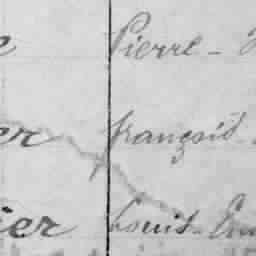 e Pierre -
er françois -
ier Louis - Em